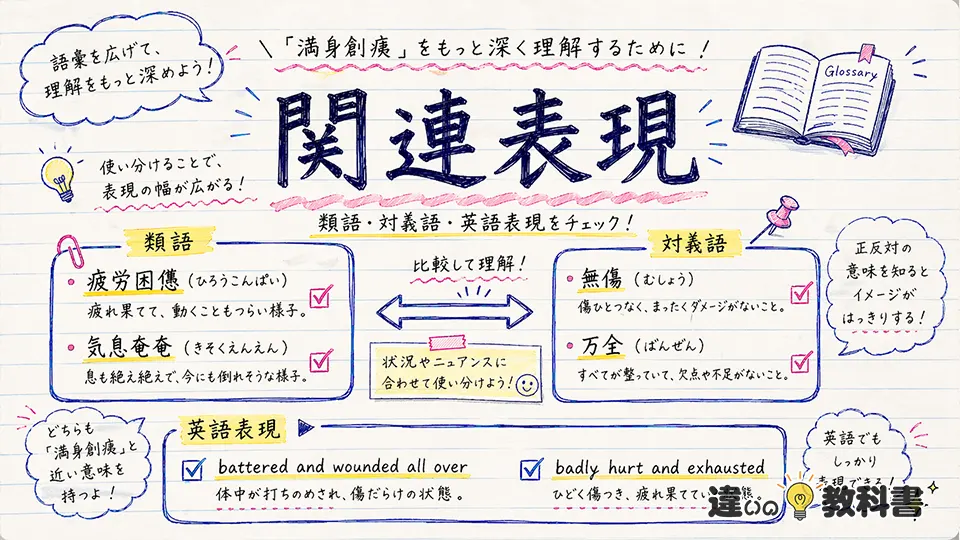 語彙を広げて、
理解をもっと深めよう!
\「満身創痍」をもっと深く理解するために!
Glossary
関連表現
使い分けることで、
表現の幅が広がる!
類語・対義語・英語表現をチェック!
類語
疲労困憊(ひろうこんぱい)
疲れ果てて、動くこともつらい様子。
気息奄奄(きそくえんえん)
息も絶え絶えで、今にも倒れそうな様子。
比較して理解!
状況やニュアンスに
合わせて使い分けよう!
対義語
無傷(むしょう)
傷ひとつなく、まったくダメージがないこと。
万全(ばんぜん)
すべてが整っていて、欠点や不足がないこと。
正反対の
意味を知ると
イメージが
はっきりする!
どちらも
「満身創痍」と
近い意味を
持つよ!
英語表現
battered and wounded all over
体中が打ちのめされ、傷だらけの状態。
badly hurt and exhausted
ひどく傷つき、疲れ果ててい 態。
英語でも
しっかり
表現できる!
違いの教科書